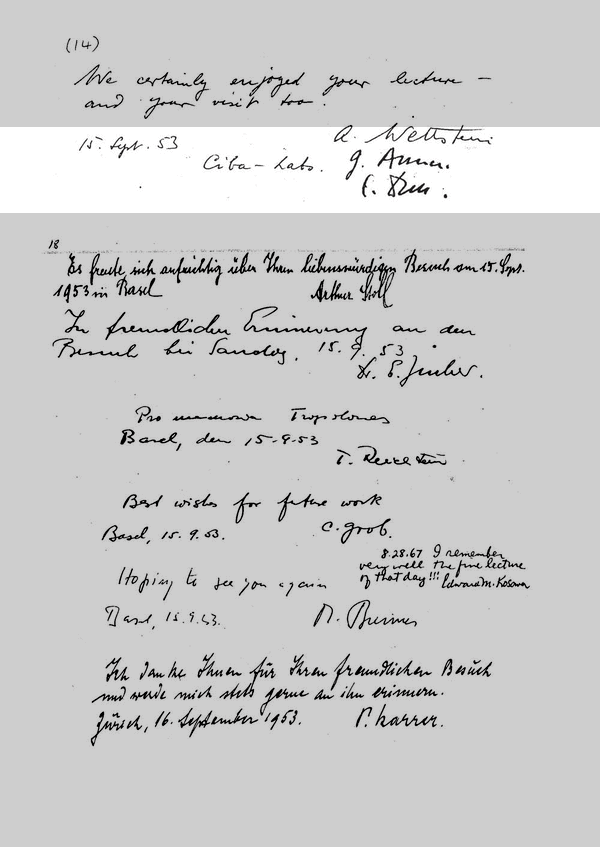 (14)
We certainly enjoyed your lecture –
and your visit too.
15. Sept. 53
A. Wettstein
Ciba-Labs. G. Anner.
18
Es freute sich aufrichtig über Ihren liebenswürdigen Besuch am 15. Sept.
1953 in Basel
Arthur Stoll
In freundlicher Erinnerung an den
Besuch bei Sandoz, 15. 9. 53.
Dr. E.
Pro memoria Tropolones
Basel, den 15-9-53
T. Reichstein
Best wishes for future work
Basel, 15. 9. 53.
C. Grob.
8.28.67 I remember
very well the fine lecture
of that day!!! Edward M. Kosower
Hoping to see you again
Basel, 15.9.53.
Ich danke Ihnen für Ihren freundlichen Besuch
und werde mich stets gerne an ihn erinnern.
Zürich, 16. September 1953.
P. Karrer.